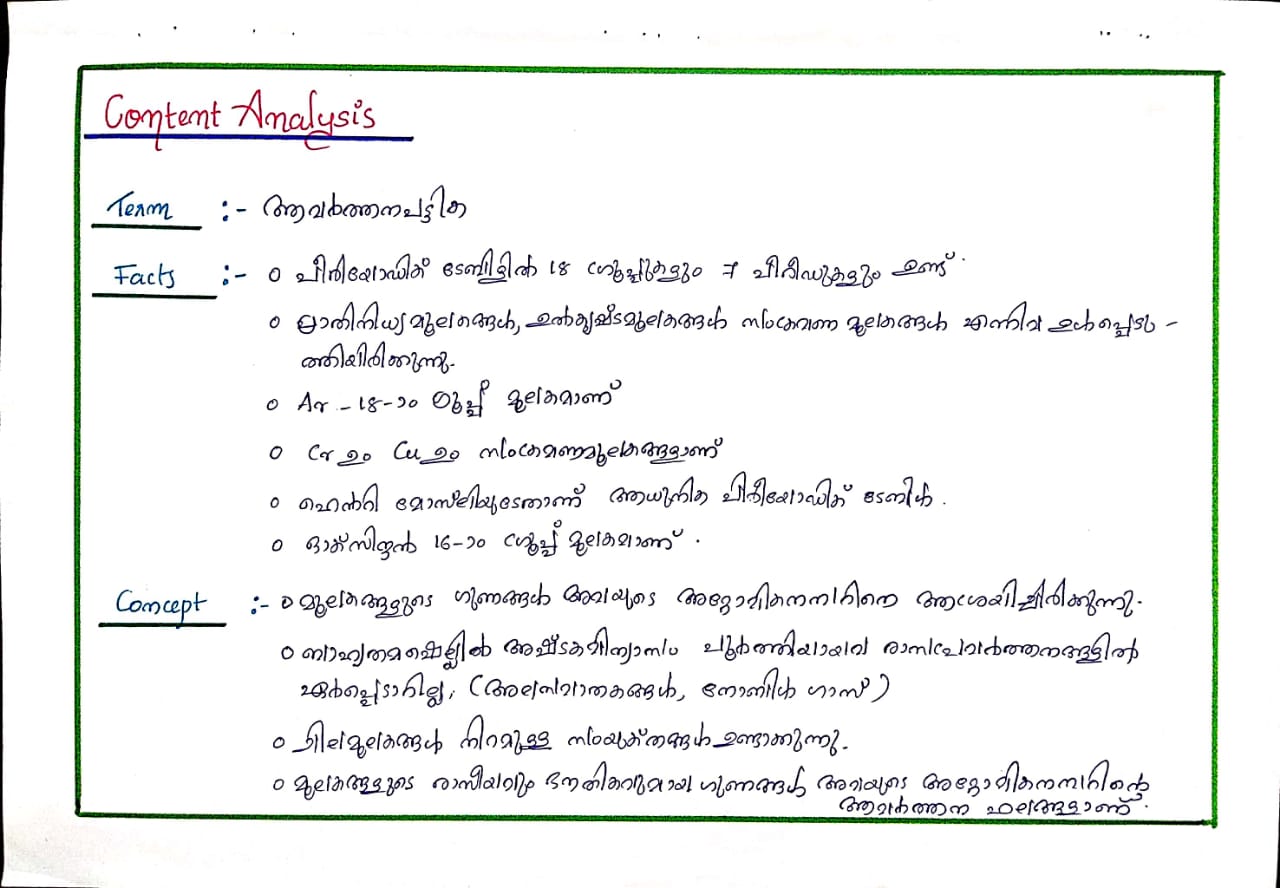 Content Analysis
Term :- ആവർത്തനപട്ടിക
Facts :- o പീരിയോഡിക് ടേബിളിൽ 18 ഗ്രൂപ്പുകളും 7 പീരീഡുകളും ഉണ്ട്.
o പ്രാതിനിധ്യമൂലകങ്ങൾ, ഉൽകൃഷ്ടമൂലകങ്ങൾ സംക്രമണ മൂലകങ്ങൾ എന്നിവ ഉൾപ്പെടു -
ത്തിയിരിക്കുന്നു.
o Ar - 18-ാം ഗ്രൂപ്പ് മൂലകമാണ്
o Cr ഉം Cu ഉം സംക്രമണമൂലകങ്ങളാണ്
o ഹെൻറി മോസ്ലിയുടേതാണ് ആധുനിക പീരിയോഡിക് ടേബിൾ.
o ഓക്സിജൻ 16-ാം ഗ്രൂപ്പ് മൂലകമാണ്.
Concept :- o മൂലകങ്ങളുടെ ഗുണങ്ങൾ അവയുടെ അറ്റോമികനമ്പറിനെ ആശ്രയിച്ചിരിക്കുന്നു.
o ബാഹ്യതമഷെല്ലിൽ അഷ്ടകവിന്യാസം പൂർത്തിയായവ രാസപ്രവർത്തനങ്ങളിൽ
ഏർപ്പെടാറില്ല, (അലസവാതകങ്ങൾ, നോബിൾ ഗാസ്)
o ചിലമൂലകങ്ങൾ നിറമുള്ള സംയുക്തങ്ങൾ ഉണ്ടാക്കുന്നു.
o മൂലകങ്ങളുടെ രാസീയവും ഭൗതികവുമായ ഗുണങ്ങൾ അവയുടെ അറ്റോമികനമ്പറിന്റെ
ആവർത്തന ഫലങ്ങളാണ്.